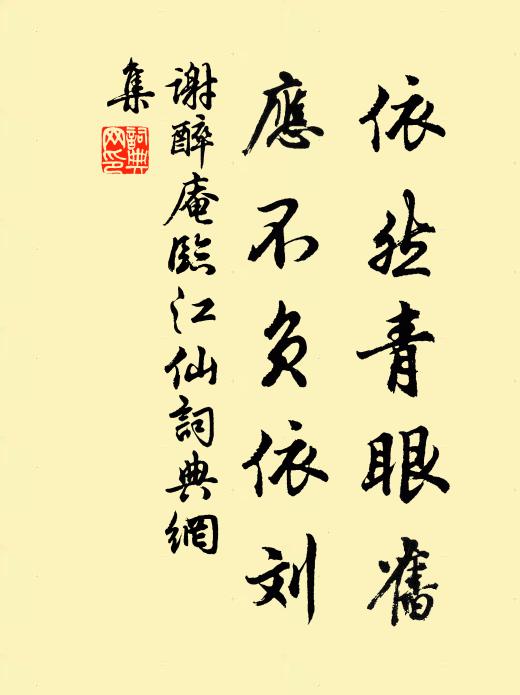 依然青眼舊
應不負依刘
谢醉庵臨江仙詞典網
集
詞典
网印